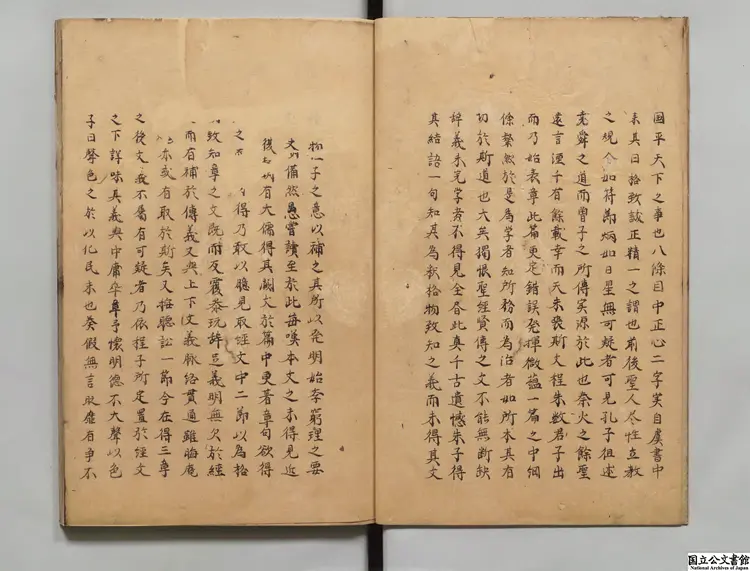 国平天下之事也八條目中正心二字実自虞書中
来其曰格致誠正精一之謂也前後聖人尽性立教
之規合如符節炳如日星無可疑者可見孔子祖述
堯舜之道而曽子之所傳実源於此也秦火之餘聖
遠言湮千有餘載幸而天未喪斯文程朱数君子出
而乃始表章此篇更定錯誤発揮微蘊一篇之中綱
條粲然於是為学者知所務而為治者知所本其有
功於斯道也大矣獨恨聖經賢傳之文不能無断缺
辞義未完学者不得見全吾此真千古遺憾朱子得
其結語一句知其為釈格物致知之義而未得其文
子之意以補之其所以発明始夲窮理之要
備然愚嘗讀至於此毎嘆本文之未得見近
有大儒得其闕文於篇中更著章句欲得
之 得乃敢以臆見取經文中二節以為格
致知章之文既而反覆参玩辞足義明無欠於經
而有補於傳義又與上下文義脈絡貫通雖晦庵
亦或有取於斯矣又按聽訟一節今在得三章
之後文我不屬有可疑者乃依程子所定置於経文
之下詳味其義與中庸卒章予懐明德不大聲以色
子曰聲色之於以化民末也癸假無言時靡有争不
国立公文書館
National Archives of Japan